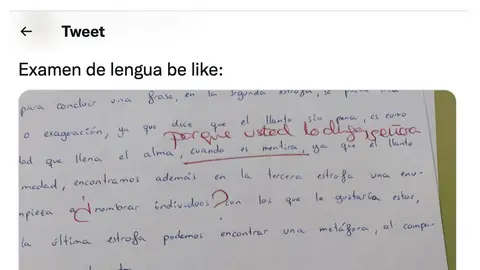 Tweet
Examen de lengua be like:
para concluir una frase, en la segunda estrofa, se
o exageración, ya que dice que el llanto sin pena, es como
porque usted lo diga, señora
dad que llena el alma, cuando es mentira, ya que el llanto
medad, encontramos además en la tercera estrofa una enu-
mpieza a ¿nombrar individuos? con los que le gustaría estar,
la última estrofa podemos encontrar una metáfora, al compa-